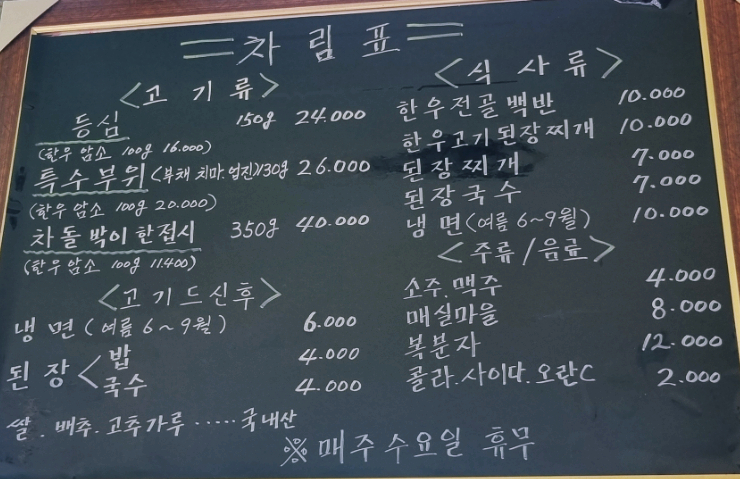 차림표
<고기류>
등심 150g 24.000
(한우 암소 100g 16.000)
특수부위 (부채 치마.업진)130g 26.000
(한우 암소 100g 20.000)
차돌박이 한접시 350g 40.000
(한우 암소 100g 11.400)
<고기드신후>
냉면 (여름 6~9월) 6.000
된장 < 밥 4.000
국수 4.000
쌀. 배추. 고추가루 ‥‥‥ 국내산
<식사류>
한우전골백반 10.000
한우고기된장찌개 10.000
된장찌개 7.000
된장국수 7.000
냉면(여름 6~9월) 10.000
<주류/음료>
소주.맥주 4.000
매실마을 8.000
복분자 12.000
콜라.사이다.오란C 2.000
※매주 수요일 휴무